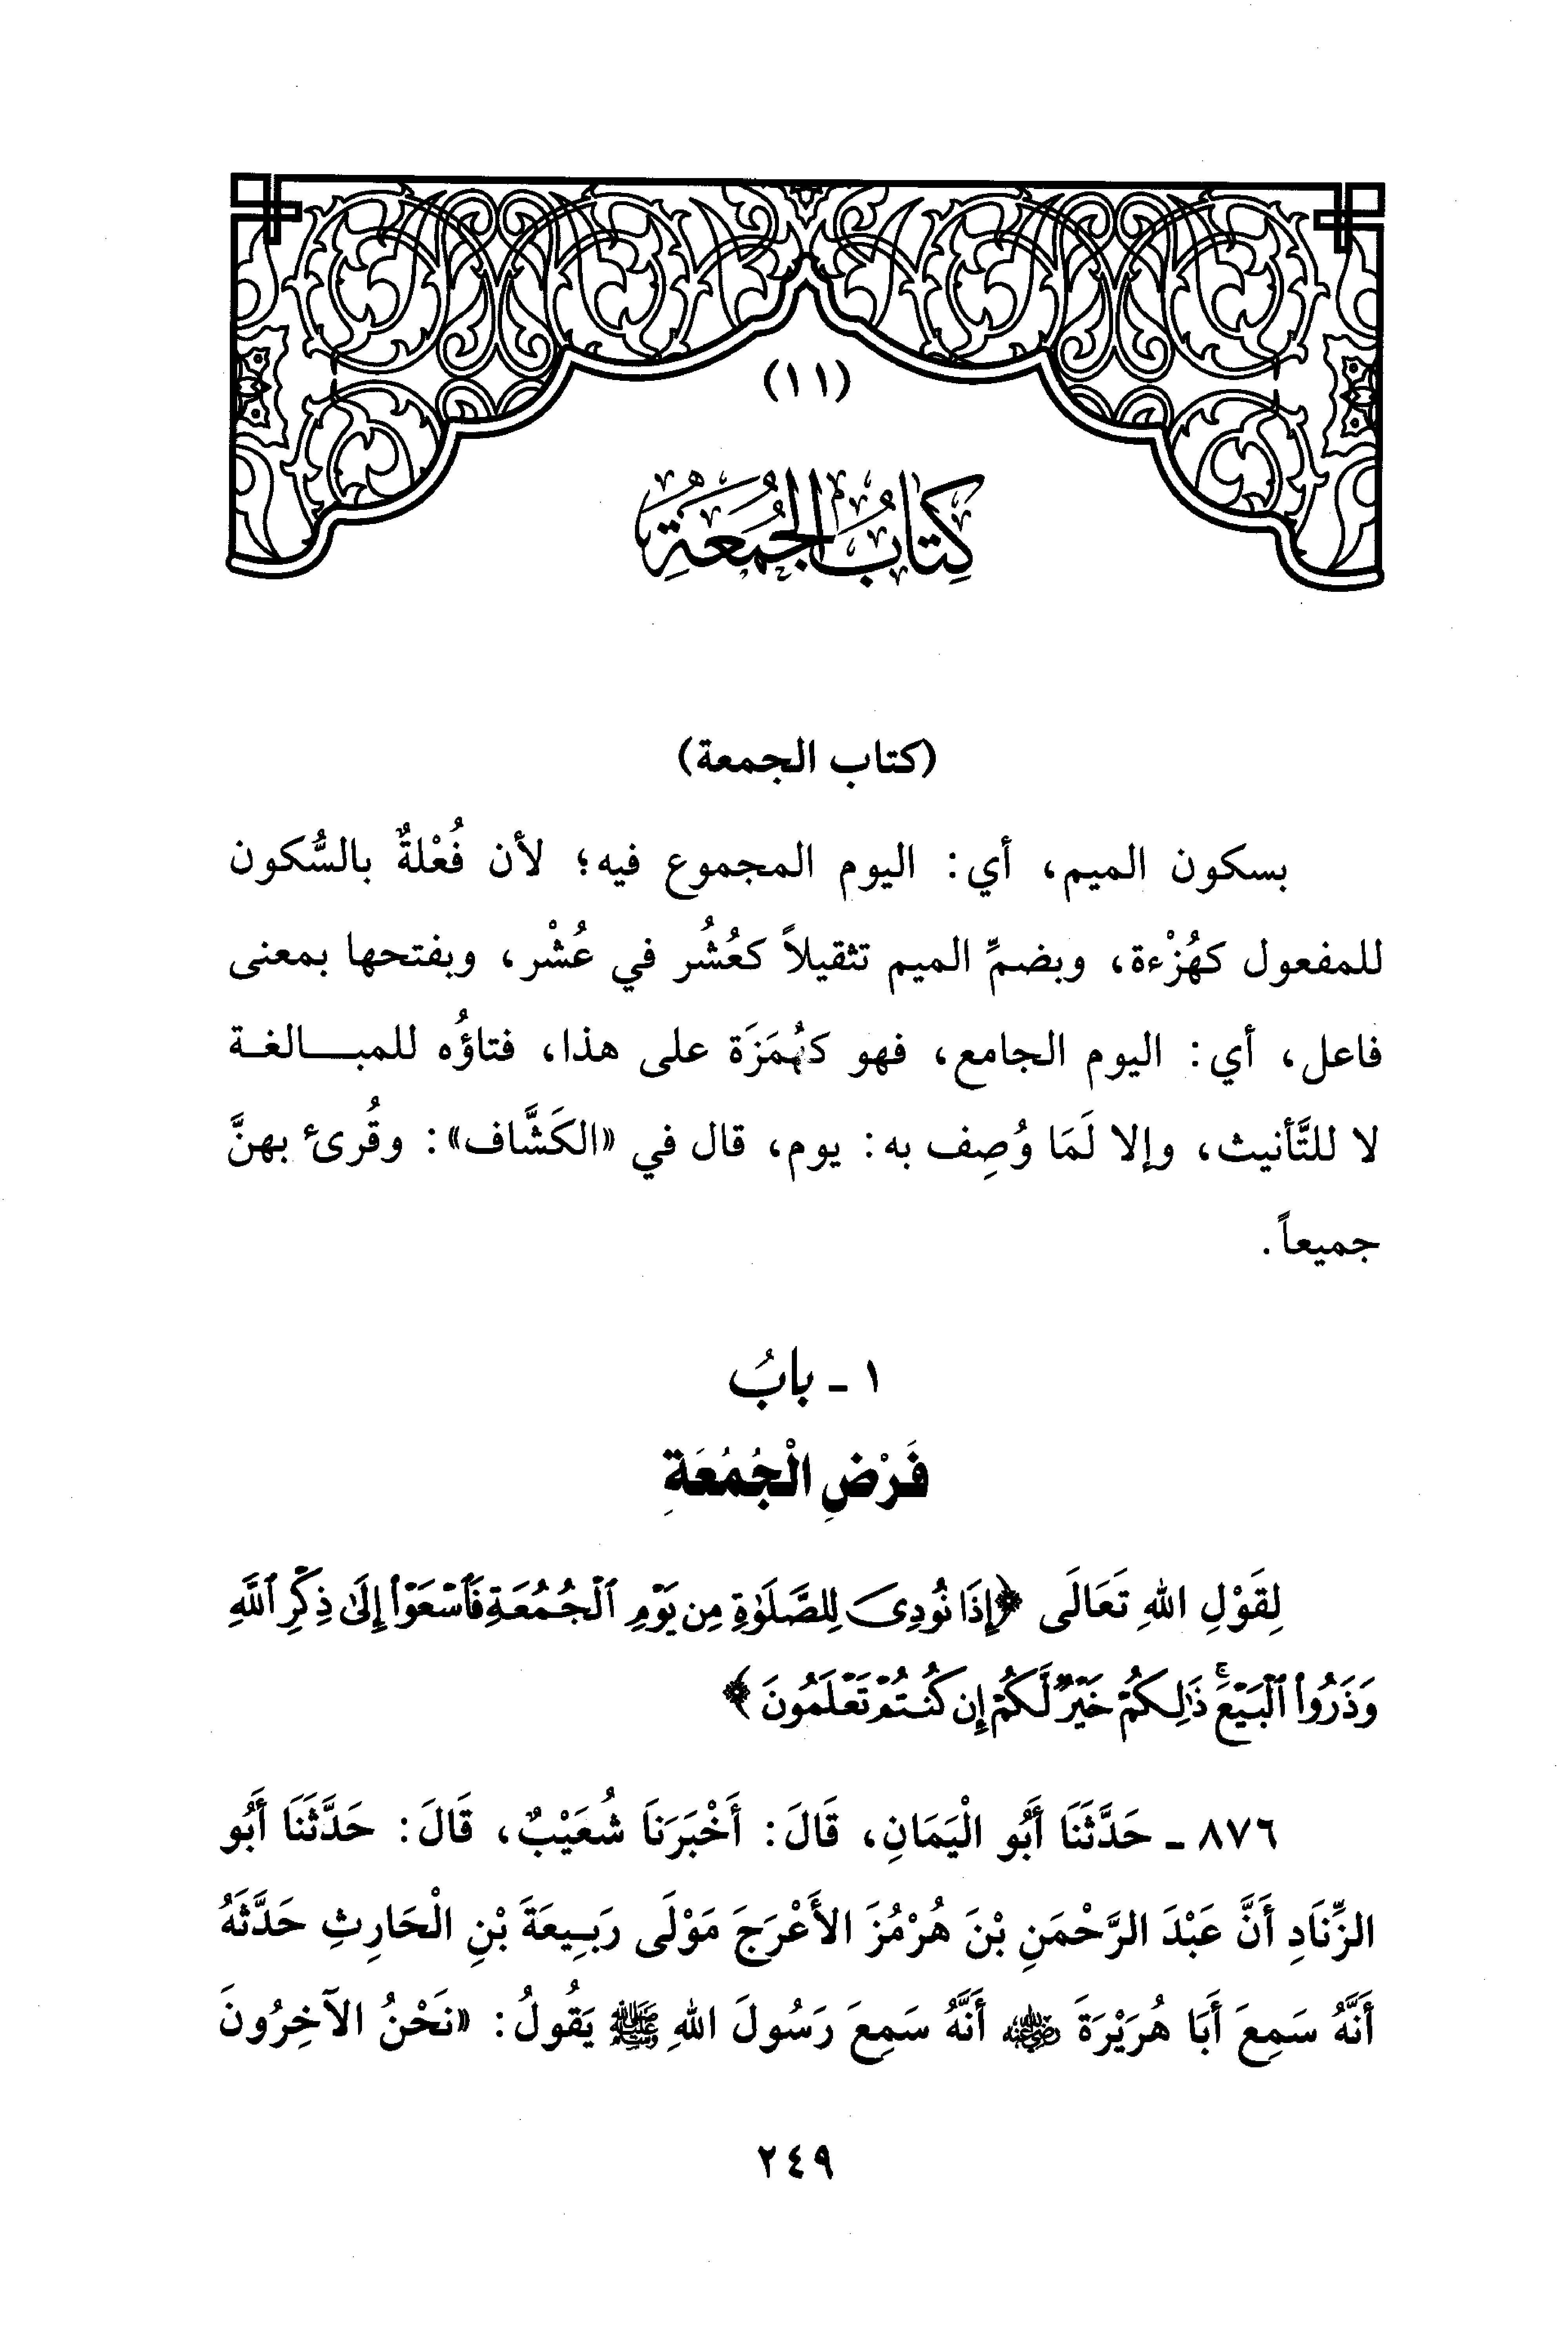 (١١)
كِتَابُ الجُمُعَةِ
(كتاب الجمعة)
بسكون الميم، أي: اليوم المجموع فيه؛ لأن فُعْلةٌ بالسُّكون
للمفعول كهُزْءة، وبضمِّ الميم تثقيلاً كعُشُر في عُشْر، وبفتحها بمعنى
فاعل، أي: اليوم الجامع، فهو كهُمَزَة على هذا، فتاؤُه للمبـــالغـة
لا للتَّأنيث، وإلا لَمَا وُصِف به: يوم، قال في «الكَشَّاف»: وقُرئ بهنَّ
جميعاً.
١ - بابُ
فَرْضِ الْجُمُعَةِ
لِقَوْلِ اللهِ تَعَالَى ﴿إِذَا نُودِىَ لِلصَّلَوٰةِ مِن يَوْمِ ٱلْجُمُعَةِ فَٱسْعَوْا۟ إِلَىٰ ذِكْرِ ٱللَّهِ
وَذَرُوا۟ ٱلْبَيْعَ ۚ ذَٰلِكُمْ خَيْرٌ لَّكُمْ إِن كُنتُمْ تَعْلَمُونَ﴾
٨٧٦ - حَدَّثَنَا أَبُو الْيَمَانِ، قَالَ: أَخْبَرَنَا شُعَيْبٌ، قَالَ: حَدَّثَنَا أَبُو
الزِّنَادِ أَنَّ عَبْدَ الرَّحْمَنِ بْنَ هُرْمُزَ الأَعْرَجَ مَوْلَى رَبِيعَةَ بْنِ الْحَارِثِ حَدَّثَهُ
أَنَّهُ سَمِعَ أَبَا هُرَيْرَةَ رضي الله عنه أَنَّهُ سَمِعَ رَسُولَ اللهِ ﷺ يَقُولُ: «نَحْنُ الآخِرُونَ
٢٤٩